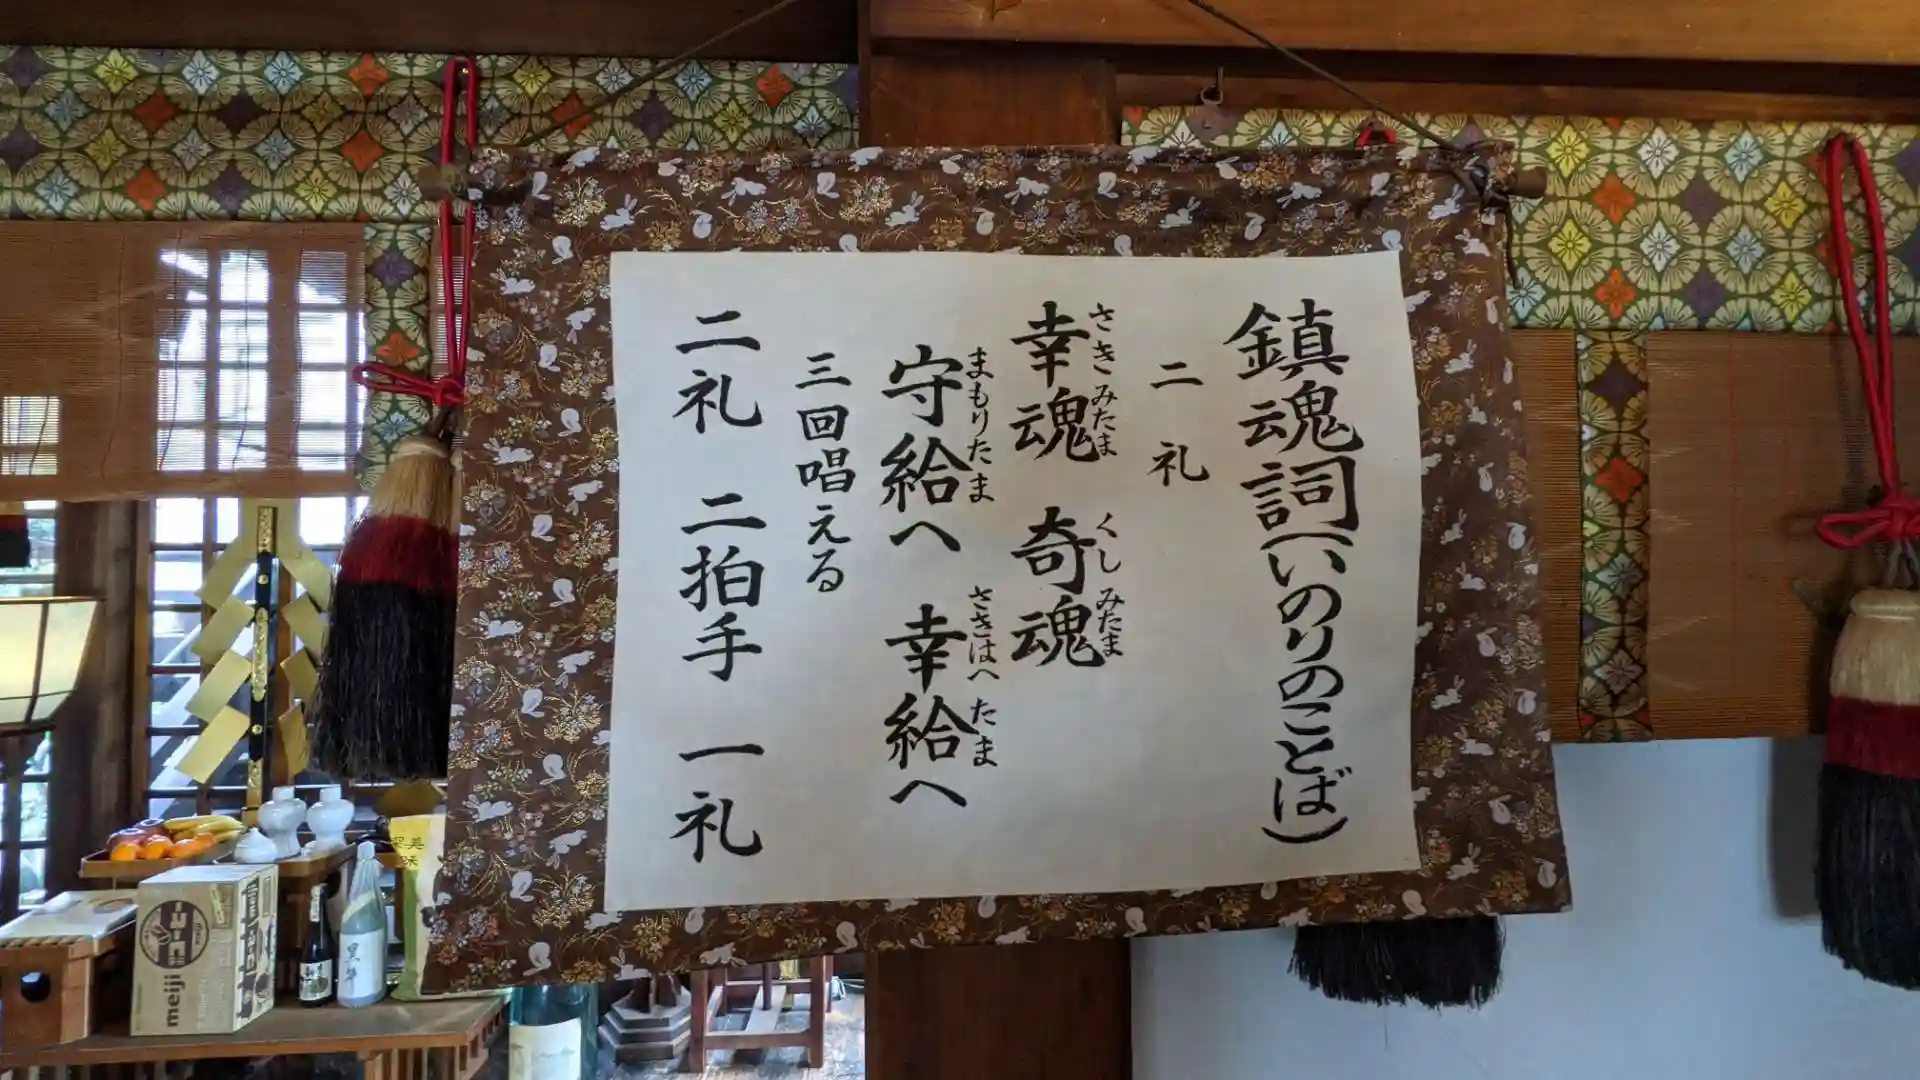 鎮魂詞(いのりのことば)
二礼
幸魂 奇魂
さきみたま くしみたま
守給へ 幸給へ
まもりたま さきはへたま
三回唱える
二礼 二拍手 一礼
meiji
黒牛